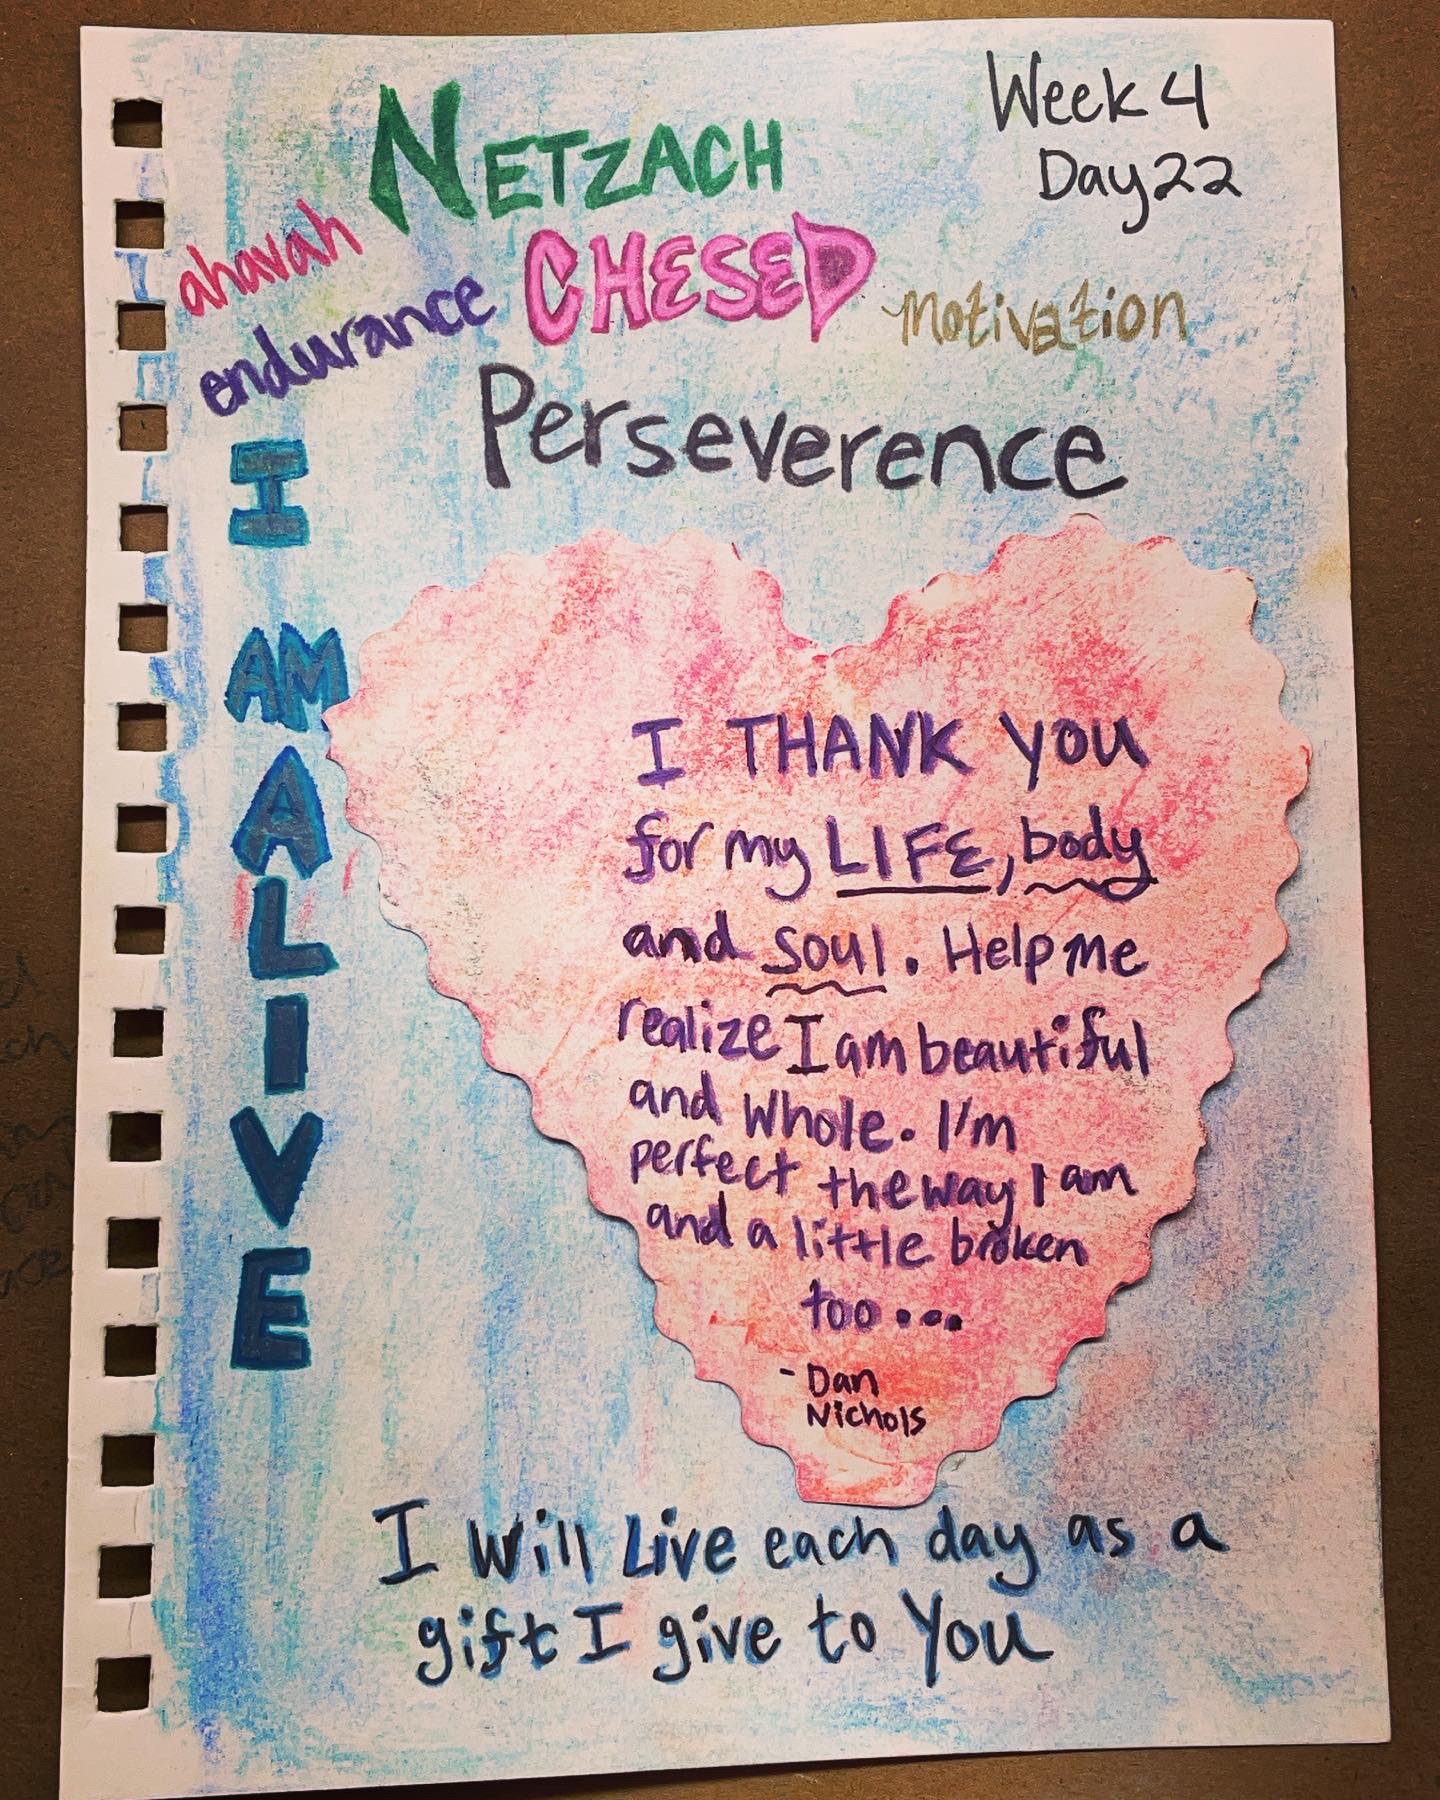 Week 4
Day 22
NETZACH
ahavah
CHESED
endurance
motivation
Perseverence
I
AM
ALIVE
I THANK YOU
for my LIFE, body
and soul. Help me
realize I am beautiful
and whole. I'm
perfect the way I am
and a little broken
too...
- Dan
Nichols
I will Live each day as a
gift I give to You